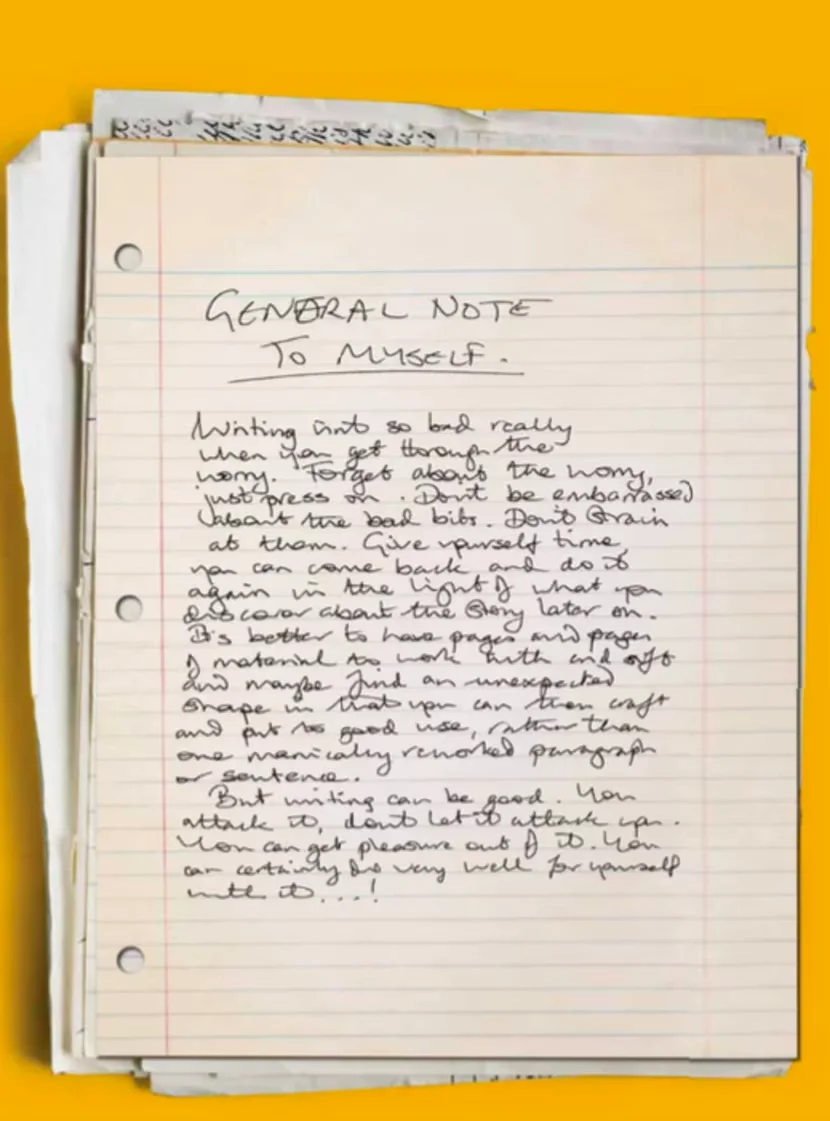 GENERAL NOTE
TO MYSELF.
Writing isn't so bad really
when you get through the
worry. Forget about the worry,
just press on. Don't be embarrassed
about the bad bits. Don't strain
at them. Give yourself time,
you can come back and do it
again in the light of what you
discover about the story later on.
It's better to have pages and pages
of material to work with and sift
and maybe find an unexpected
shape in that you can then craft
and put to good use, rather than
one manically reworked paragraph
or sentence.
But writing can be good. You
attack it, don't let it attack you.
You can get pleasure out of it. You
can certainly do very well for yourself
with it...!